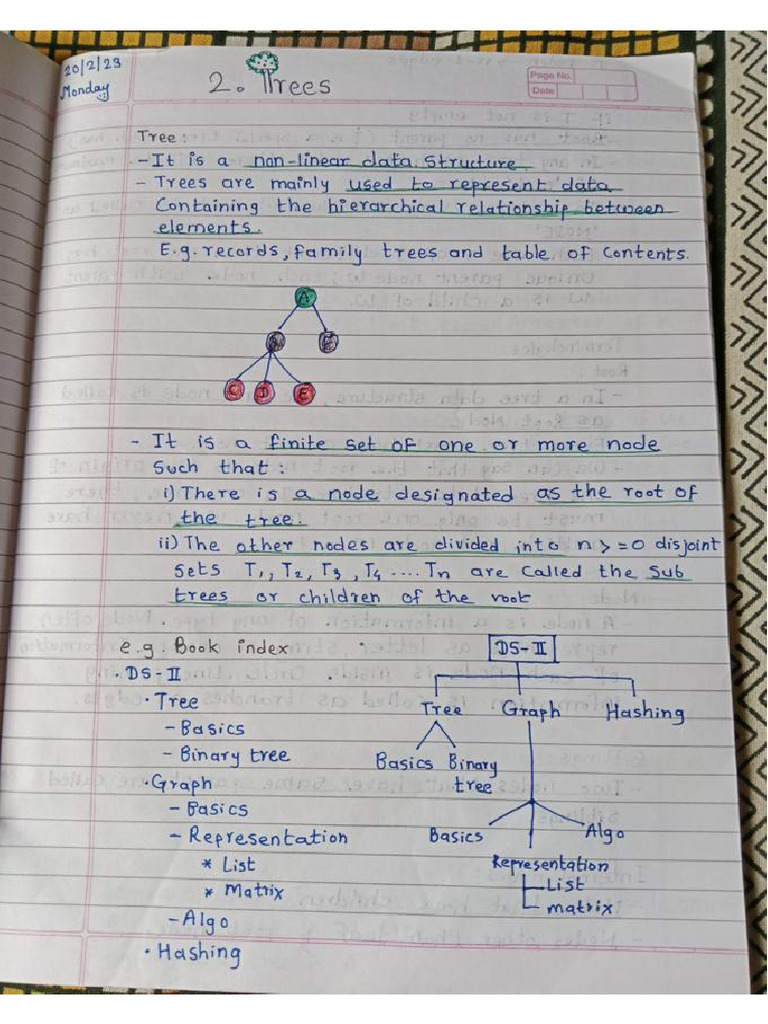 20/2/23
Monday
2. Trees
Page No.
Date
Tree:
- It is a non-linear data structure.
- Trees are mainly used to represent data
Containing the hierarchical relationship between
elements.
E.g. records, family trees and table of Contents.
A
C D E
- It is a finite set of one or more node
Such that:
i) There is a node designated as the root of
the tree.
ii) The other nodes are divided into n >= 0 disjoint
Sets T1, T2, T3, T4 .... Tn are called the Sub
trees or children of the root
e.g: Book index
. DS-II
· Tree
- Basics
- Binary tree
· Graph
- Basics
- Representation
* List
* Matrix
- Algo
· Hashing
DS-II
Tree Graph Hashing
Basics Binary
tree
Basics Algo
Representation
List
matrix